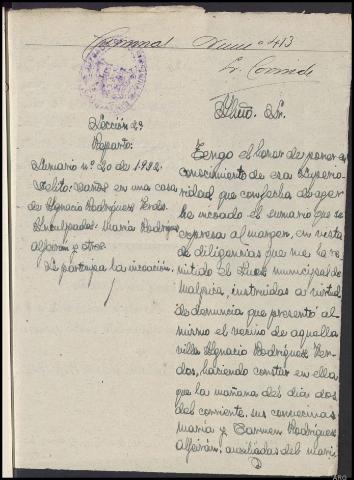 Criminal Num.º 413
Sr. Conde
Iltmo. Sr.
Sección 2ª
Reparto
Sumario nº 20 de 1932
Delito: Daños en una casa
de Ignacio Rodríguez Verdes
Inculpados: María Rodríguez
Alfeirán y otros
Se participa la incoación.
Tengo el honor de poner en
conocimiento de esa Superio-
ridad que con fecha de ayer
he incoado el sumario que se
expresa al margen, en vista
de diligencias que me ha re-
mitido el Juez municipal de
Malpica, instruidas a virtud
de denuncia que presentó al
mismo el vecino de aquella
villa Ignacio Rodríguez Ver-
des, haciendo constar en ella
que la mañana del día dos
del corriente, sus convecinas
María y Carmen Rodríguez
Alfeirán, auxiliadas del mari-
ARG